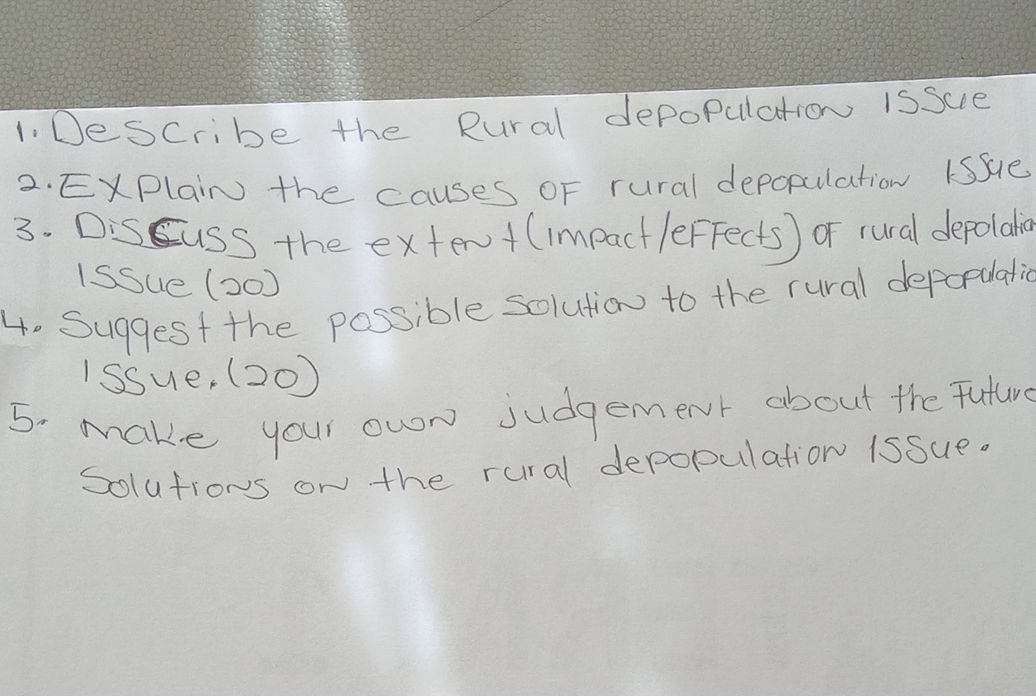 1. Describe the Rural depopulation issue
2. Explain the causes of rural depopulation issue
3. Discuss the extent (impact/effects) of rural depolatio
issue (20)
4. Suggest the possible solution to the rural depopulatio
issue. (20)
5. make your own judgement about the Future
Solutions on the rural depopulation issue.